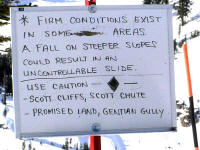 * FIRM CONDITIONS EXIST
IN SOME AREAS.
A FALL ON STEEPER SLOPES
COULD RESULT IN AN
UNCONTROLLABLE SLIDE.
USE CAUTION
- SCOTT CLIFFS, SCOTT CHUTE
- PROMISED LAND, GENTIAN GULLY